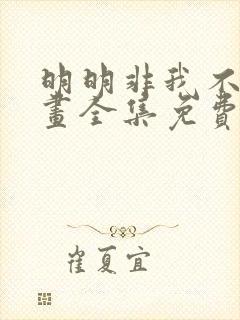 明明非我不
畫全集免費
崔夏宜